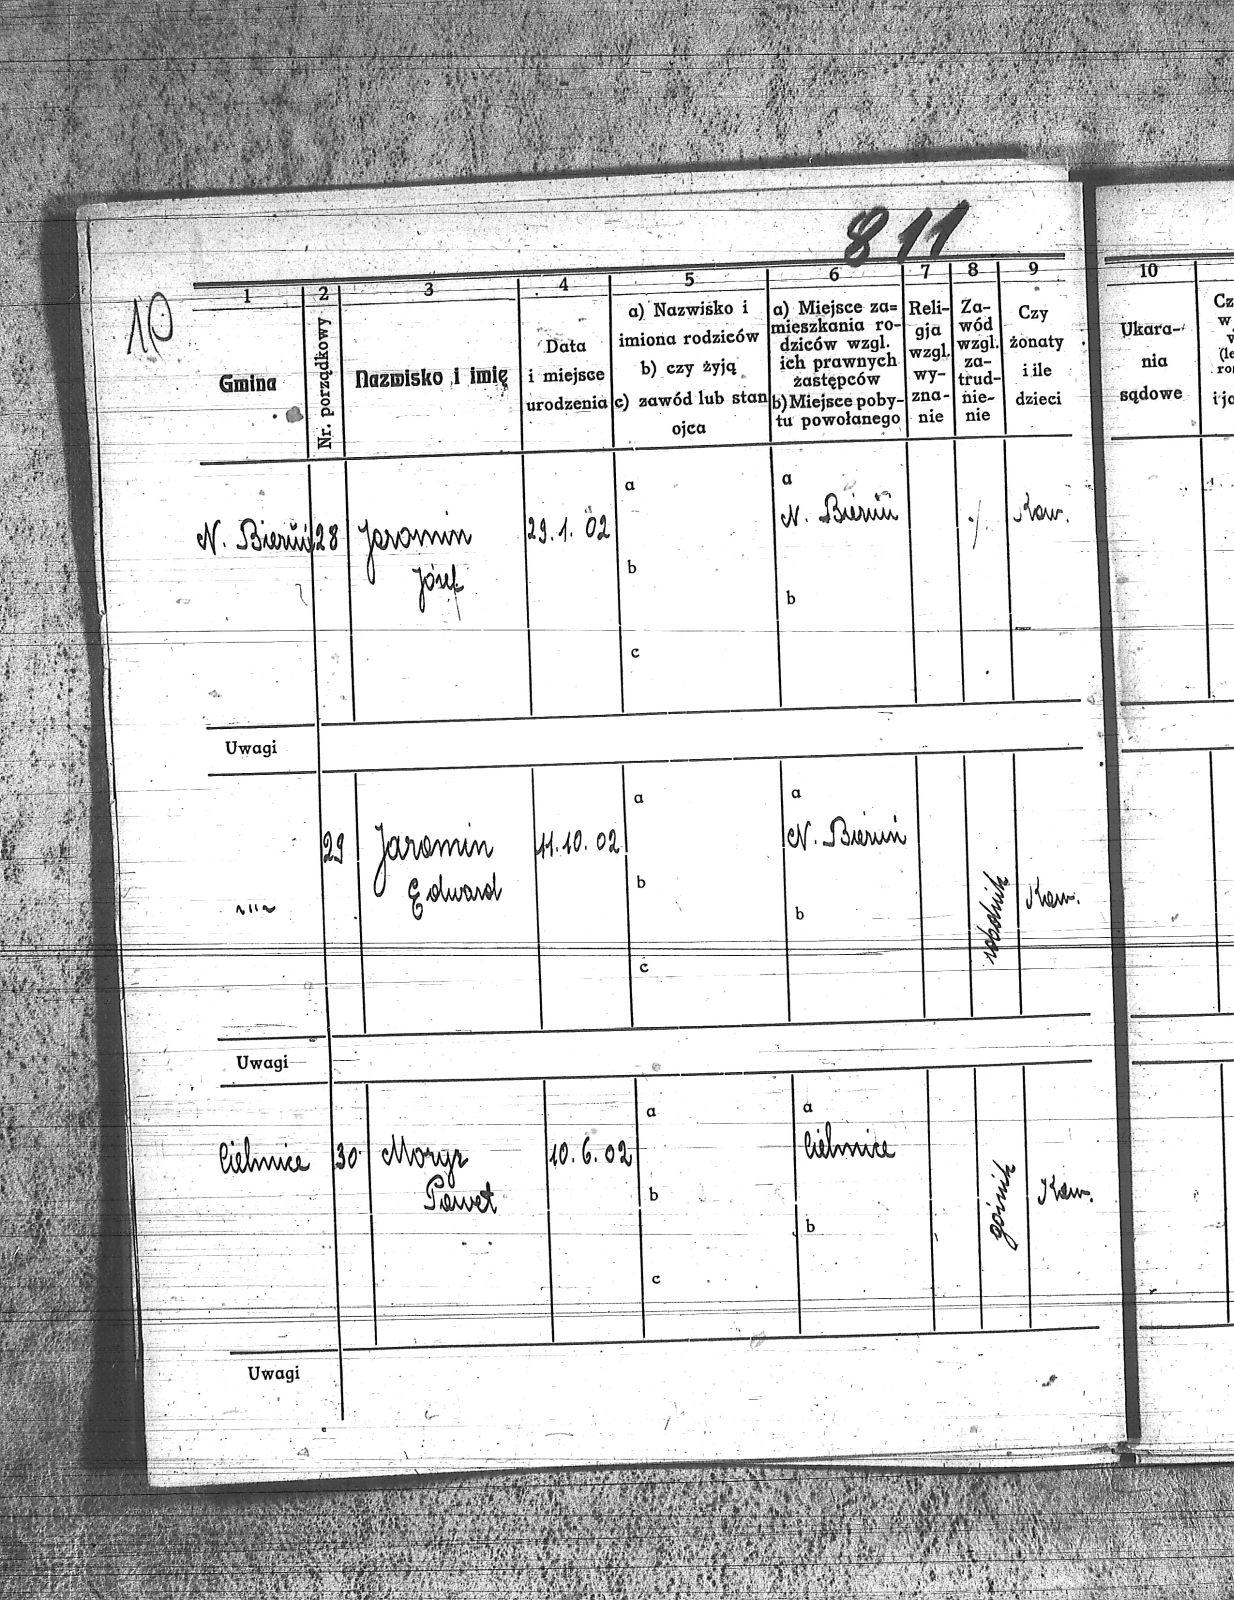 811
10
1 2 3 4 5 6 7 8 9 10
Gmina
Nr. porządkowy
Nazwisko i imię
Data
i miejsce
urodzenia
a) Nazwisko i
imiona rodziców
b) czy żyją
c) zawód lub stan
ojca
a) Miejsce za=
mieszkania ro-
dziców wzgl.
ich prawnych
zastępców
b) Miejsce poby-
tu powołanego
Reli-
gja
wzgl.
wy-
zna-
nie
Za-
wód
wzgl.
za-
trud-
nie-
nie
Czy
żonaty
i ile
dzieci
Ukara-
nia
sądowe
N. Bieruń 28 Jaromin 29.1.02
Józef
a
b
c
a
N. Bieruń
b
Kaw.
Uwagi
„ 29 Jaromin 11.10.02
Edward
a
b
c
a
N. Bieruń
b
robotnik
Kaw.
Uwagi
Cielmice 30 Moryz 10.6.02
Paweł
a
b
c
a
Cielmice
b
górnik
Kaw.
Uwagi